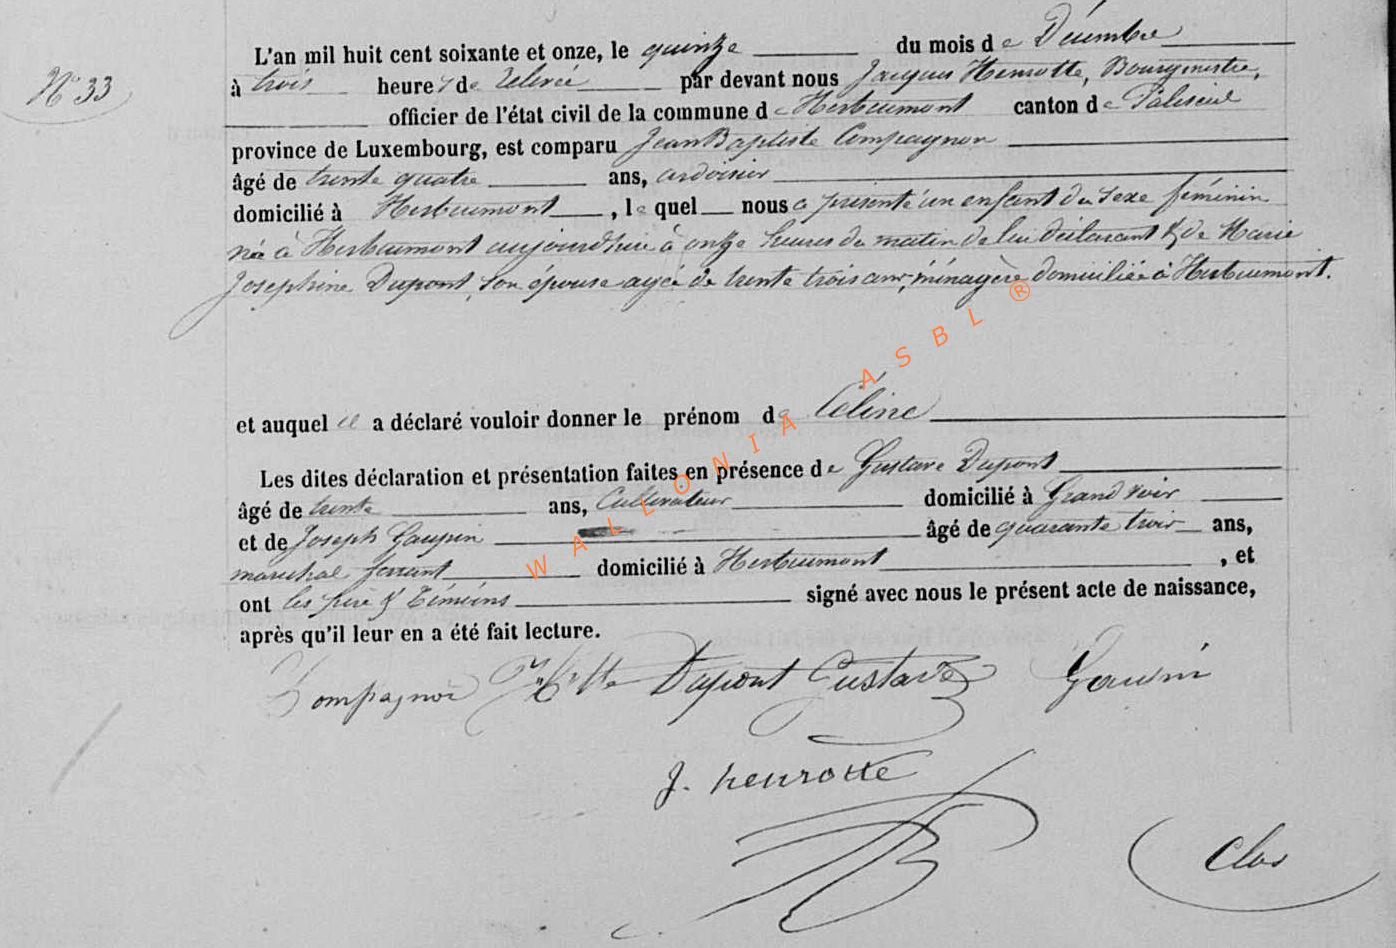 N° 33
L'an mil huit cent soixante et onze, le quinze du mois de Décembre
à trois heures de relevée par devant nous Jacques Henrotte, Bourgmestre,
officier de l'état civil de la commune de Herbeumont canton de Paliseul
province de Luxembourg, est comparu Jean Baptiste Compagnon
âgé de trente quatre ans, ardoisier
domicilié à Herbeumont, lequel nous a présenté un enfant du sexe féminin
née à Herbeumont aujourd'hui à onze heures du matin de lui déclarant & de Marie
Josephine Dupont, son épouse agée de trente trois ans, ménagère domiciliée à Herbeumont.
et auquel il a déclaré vouloir donner le prénom de Céline
Les dites déclaration et présentation faites en présence de Gustave Dupont
âgé de trente ans, Cultivateur domicilié à Grand voir
et de Joseph Gaupin âgé de quarante trois ans,
maréchal ferrant domicilié à Herbeumont, et
ont les père & témoins signé avec nous le présent acte de naissance,
après qu'il leur en a été fait lecture.
Compagnon Dupont Gustave
J. henrotte
Clos
WALLONIA ASBL ®